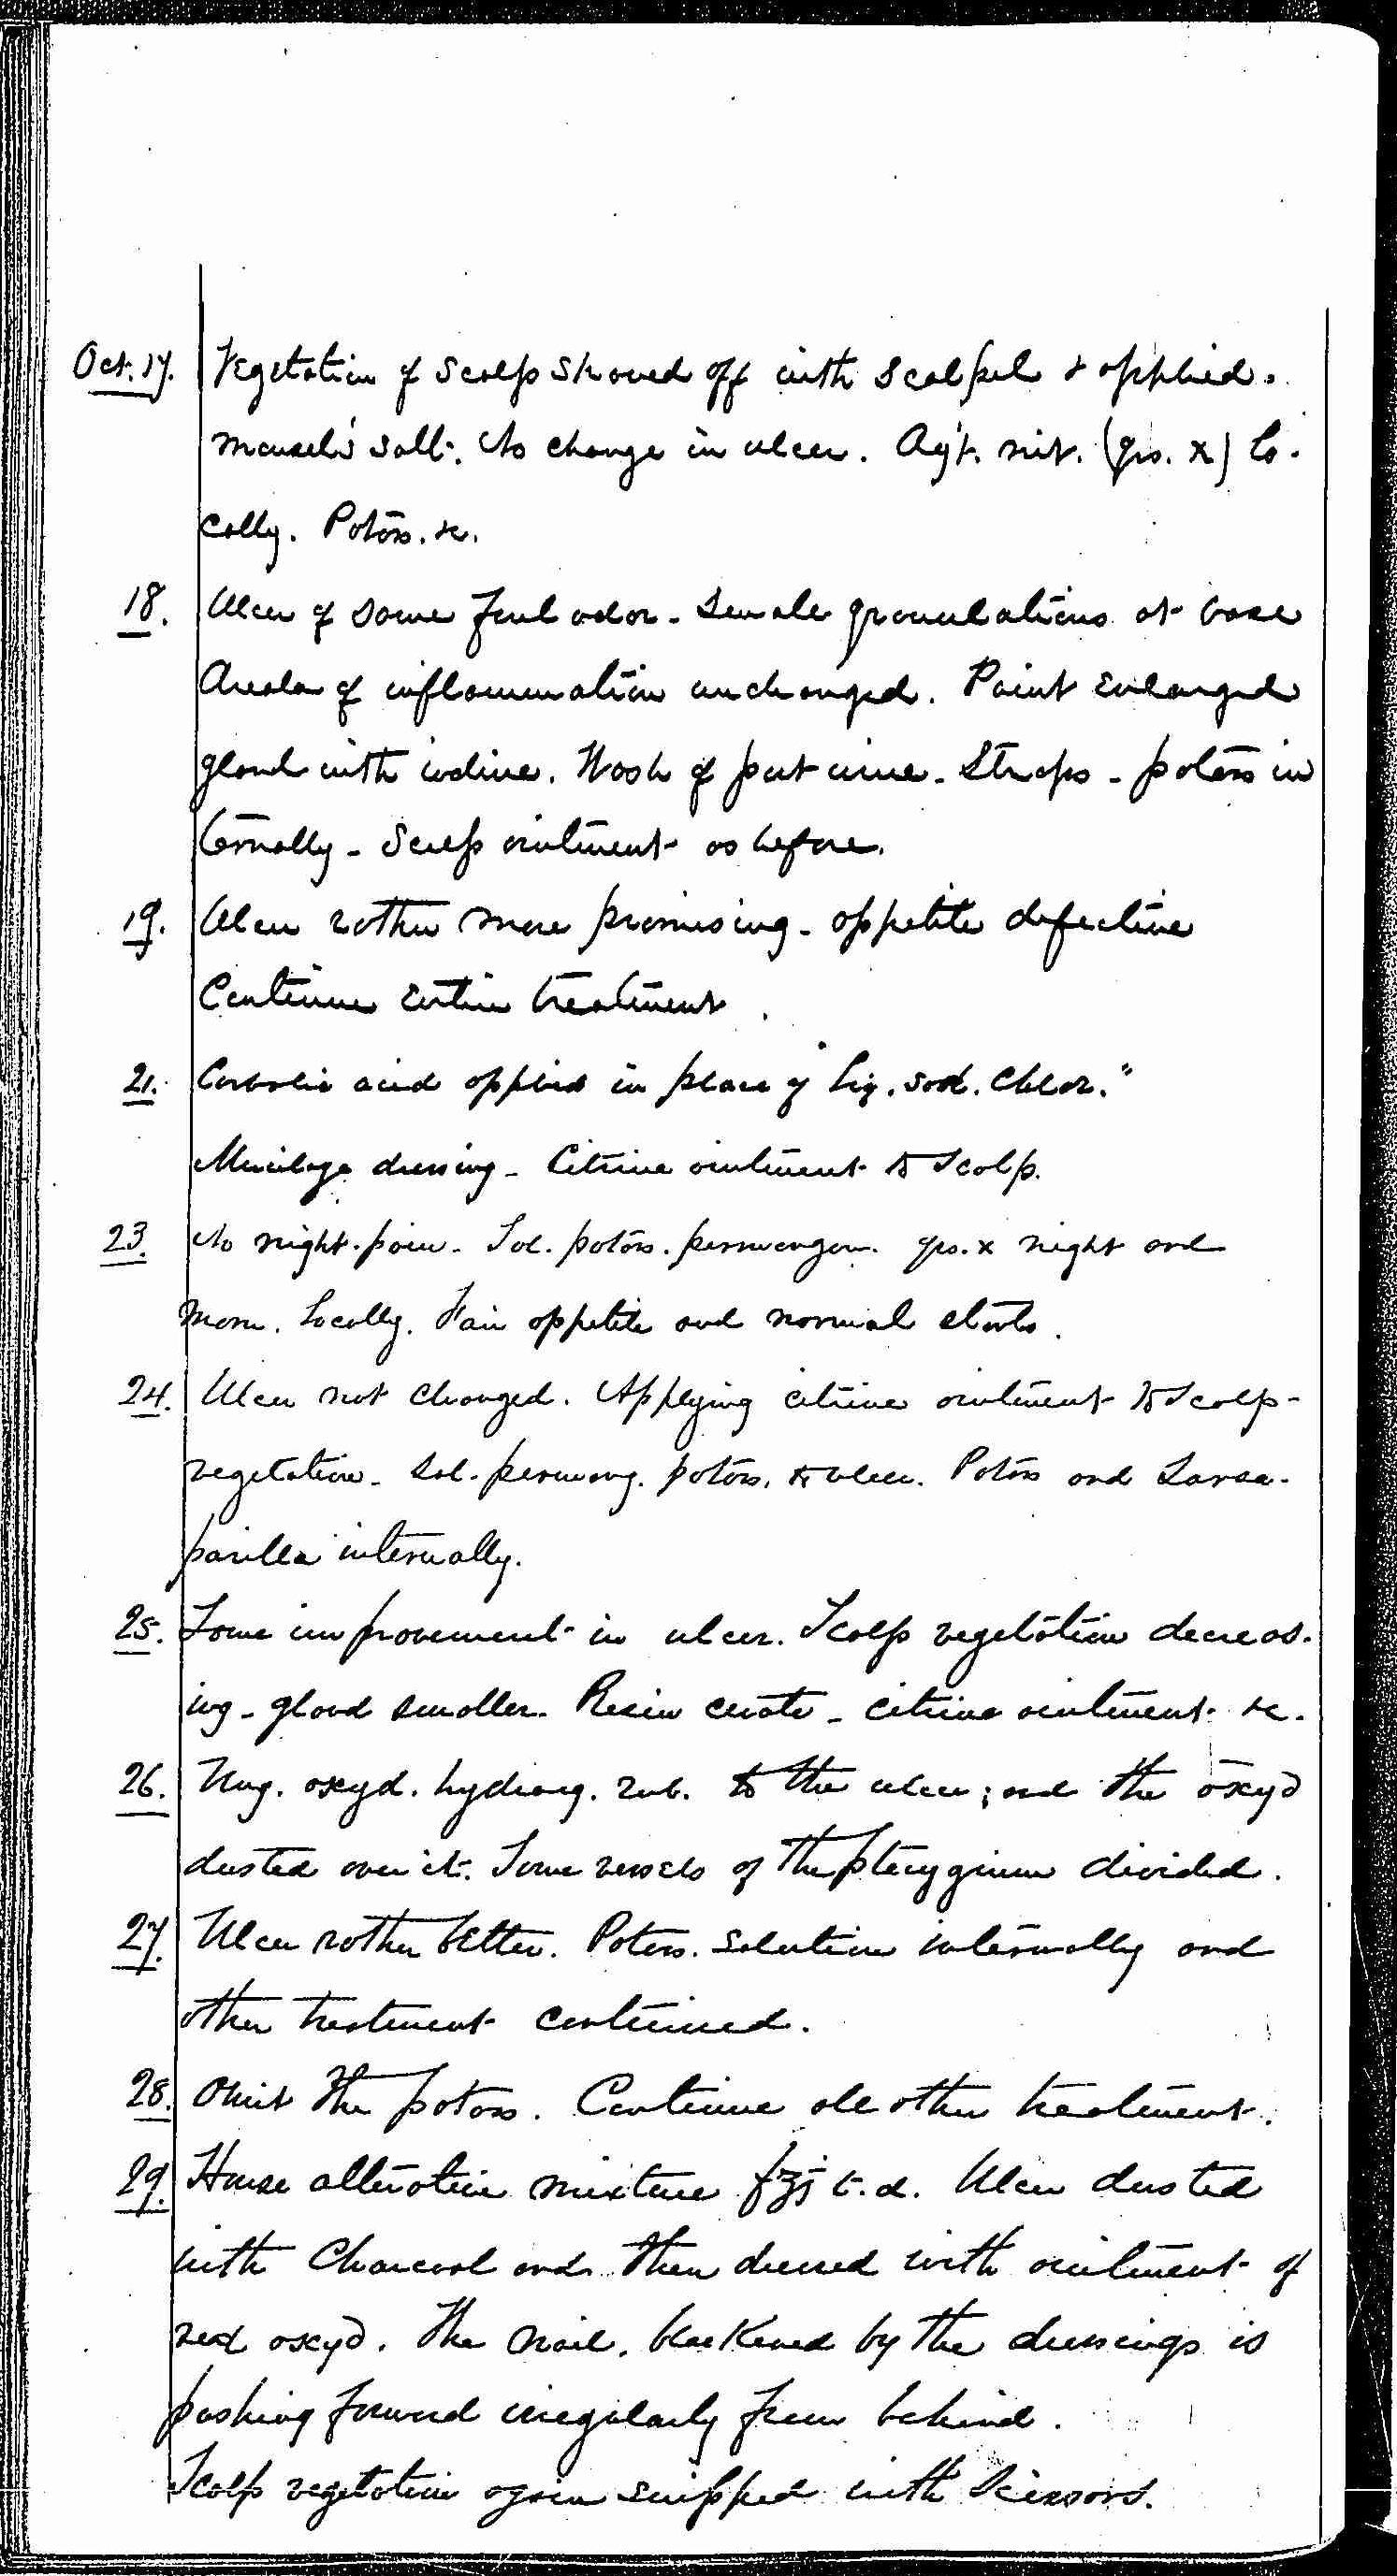 Oct. 17. Vegetation of scalp shaved off with scalpel & applied.
Monsel's salt. No change in ulcer. Agt. nit. (grs. x) lo-
cally. Potass. &c.
18. Ulcer of some foul odor - Small granulations at base
Areola of inflammation unchanged. Paint enlarged
gland with iodine. Wash of port wine - Straps - potass in
ternally - Scalp ointment as before.
19. Ulcer rather more promising - appetite defective
Continue entire treatment.
21. Carbolic acid applied in place of "Liq. sod. Chlor."
Mucilage dressing - Citrine ointment to Scalp.
23. No night-pain - Sol. potass. permangan. grs. x night and
morn. Locally. Fair appetite and normal stools.
24. Ulcer not changed. Applying citrine ointment to Scalp-
vegetation - Sol. permang. potass. to ulcer. Potass and Sarsa-
parilla internally.
25. Some improvement in ulcer. Scalp vegetation decreas-
ing - gland smaller - Resin cerate - citrine ointment &c.
26. Ung. oxyd. hydrarg. rub. to the ulcer; and the oxyd
dusted over it. Some vessels of the pterygium divided.
27. Ulcer rather better. Potass. solution internally and
other treatment continued.
28. Omit the potass. Continue all other treatment.
29. House alterative mixture f℥j t.d. Ulcer dusted
with Charcoal and then dressed with ointment of
red oxyd. The nail, blackened by the dressings is
pushing forward irregularly from behind.
Scalp vegetation again snipped with Scissors.